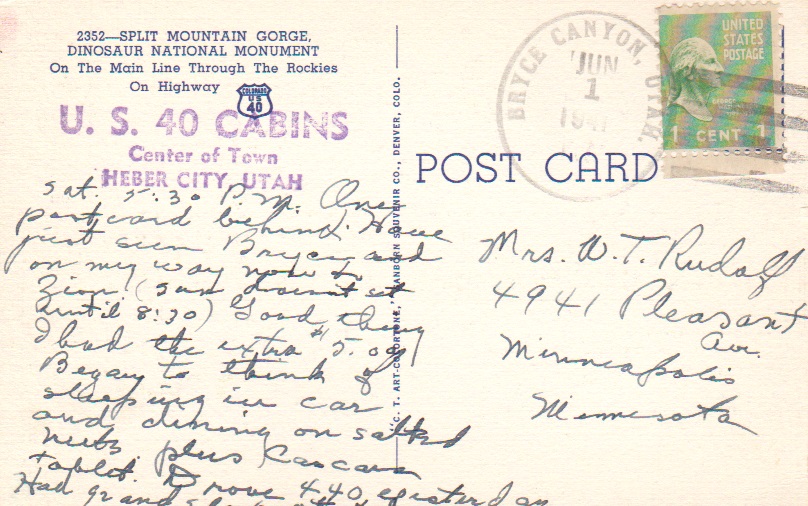 2352—SPLIT MOUNTAIN GORGE,
DINOSAUR NATIONAL MONUMENT
On The Main Line Through The Rockies
On Highway
COLORADO
US
40
U. S. 40 CABINS
Center of Town
HEBER CITY, UTAH
Sat. 5:30 P.M. One
postcard behind. Have
just seen Bryce and
on my way now to
Zion (sun doesn't set
until 8:30) Good thing
I had the extra $15.00
Began to think of
sleeping in car
and dining on salted
nuts plus Cascara
tablet. Drove 440 yesterday
Had grand
"C. T. ART-COLORTONE," SANBORN SOUVENIR CO., DENVER, COLO.
POST CARD
BRYCE CANYON, UTAH.
JUN
1
UNITED
STATES
POSTAGE
1 CENT 1
Mrs. W. T. Rudolf
4941 Pleasant
Ave.
Minneapolis
Minnesota